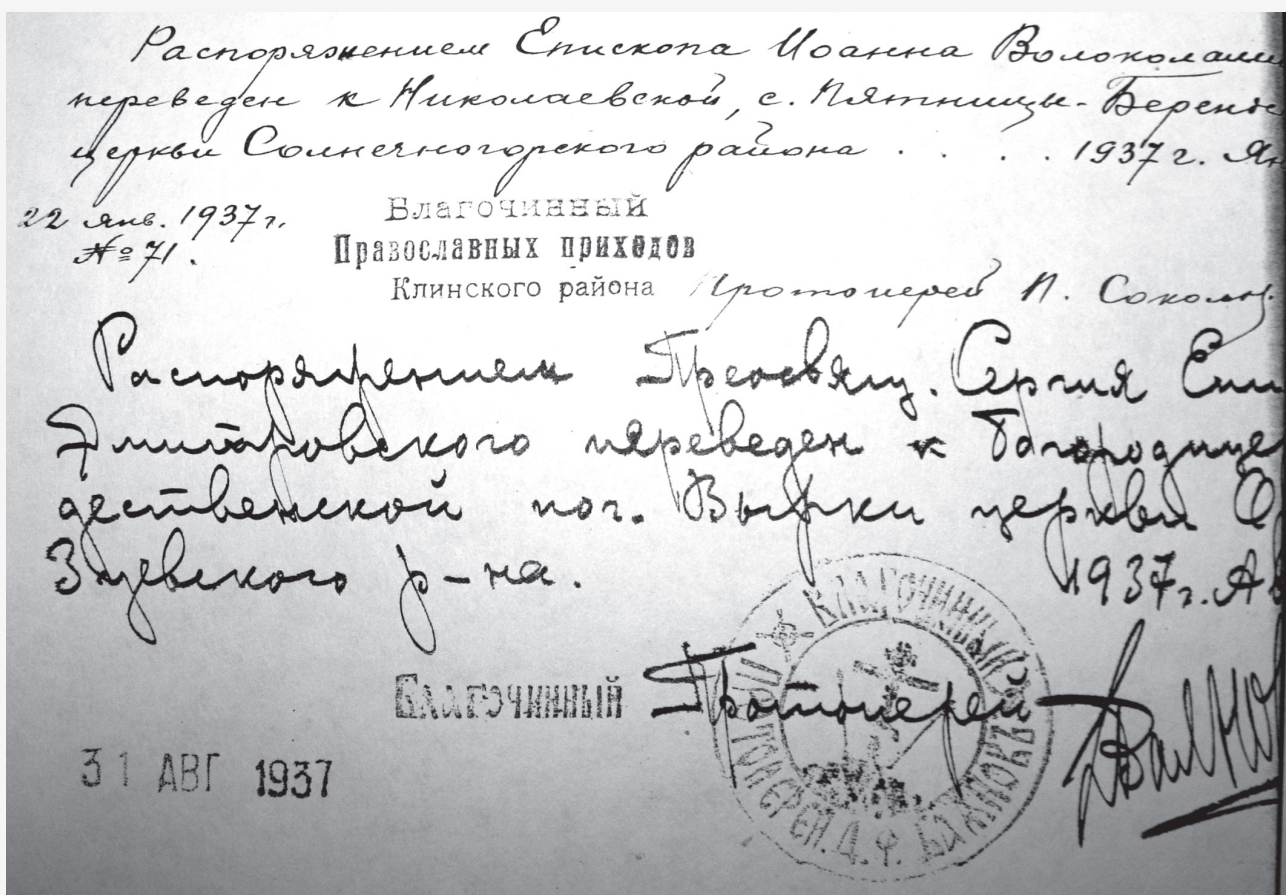 Распоряжением Епископа Иоанна Волоколам
переведен к Николаевской, с. Пятницы-Беренде
церкви Солнечногорского района . . . . 1937 г. Ян
22 янв. 1937 г.
№ 71.
Благочинный
Православных приходов
Клинского района
Протоиерей П. Соколов
Распоряжением Преосвящ. Сергия Епи
Дмитровского переведен к Богородице
дественской пог. Вырки церкви О
Зуевского р-на.
1937 г. Ав
Благочинный Протоиерей
31 АВГ 1937
БЛАГОЧИННЫЙ ПРОТОИЕРЕЙ. Д. Ф.